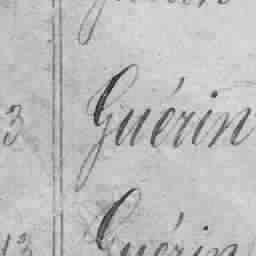 3 Guérin
13 Guérin